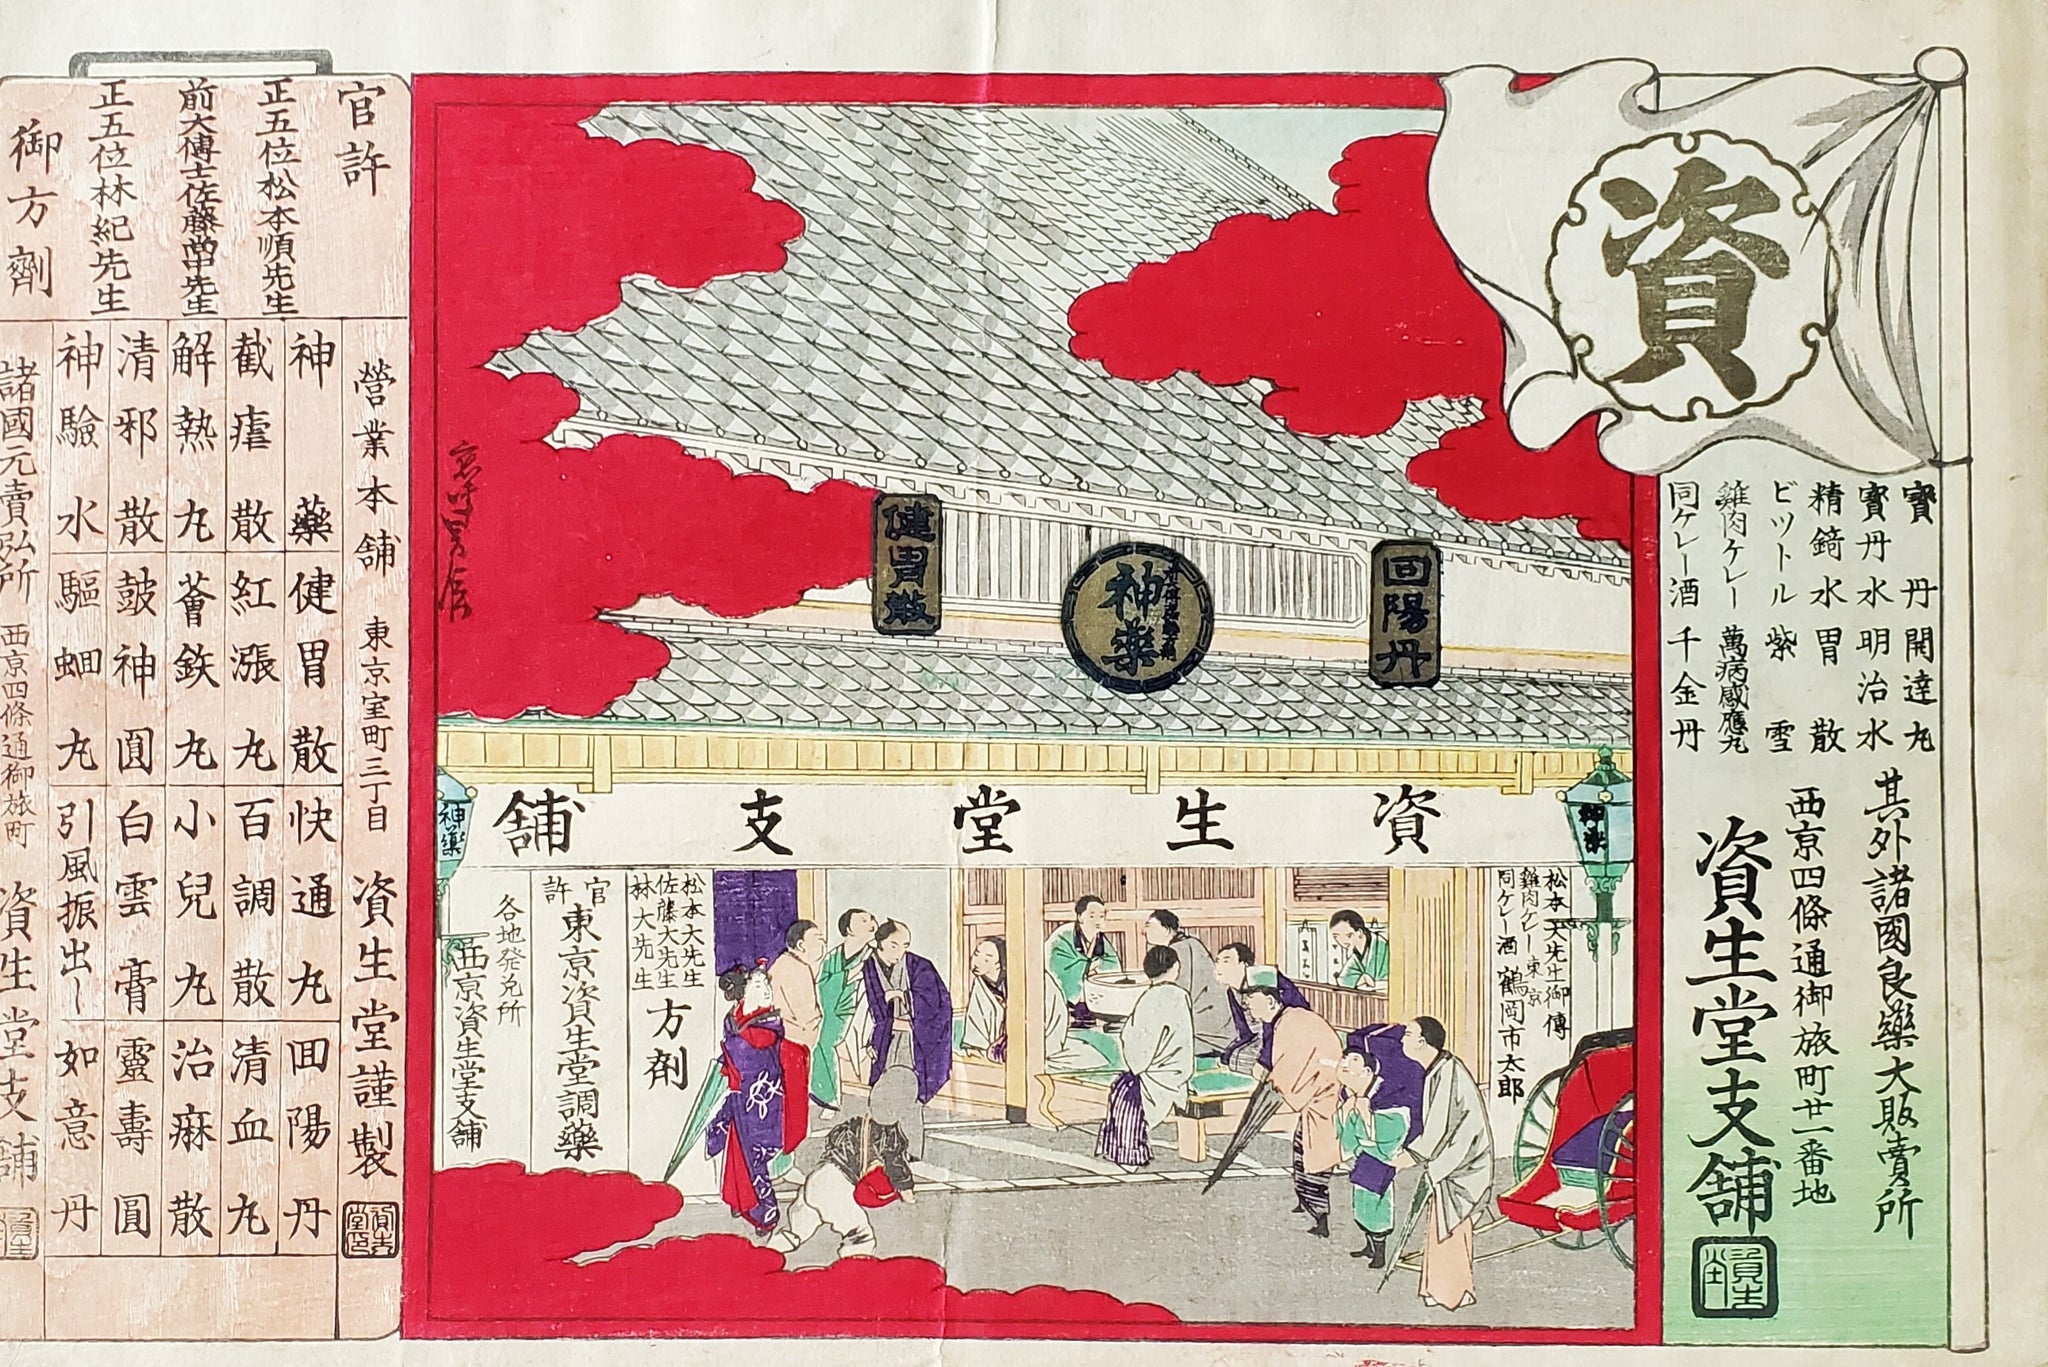 資
寳丹 開達丸
寳丹水 明治水
精錡水 胃散
ビットル 紫雪
雞肉ケレー 萬病感應丸
同ケレー酒 千金丹
其外諸國良藥大販賣所
西京四條通御旅町廿一番地
資生堂支舗
回陽丹
神藥
健胃散
資生堂支舗
神藥
神藥
松本大先生御傳
雞肉ケレー 東京
同ケレー酒 鶴岡市太郎
松本大先生
佐藤大先生
林大先生
方剤
官許
東京資生堂調藥
各地発兌所
西京資生堂支舗
官許
正五位松本順先生
前大博士佐藤尚中先生
正五位林紀先生
御方劑
營業本舗 東京室町三丁目 資生堂謹製
神藥 健胃散 快通丸 回陽丹
截瘧散 紅漲丸 百調散 清血丸
解熱丸 薈鉄丸 小兒丸 治痳散
清邪散 皷神圓 白雲膏 靈壽圓
神驗水 驅蛔丸 引風振出シ 如意丹
諸國元賣弘所 西京四條通御旅町 資生堂支舗